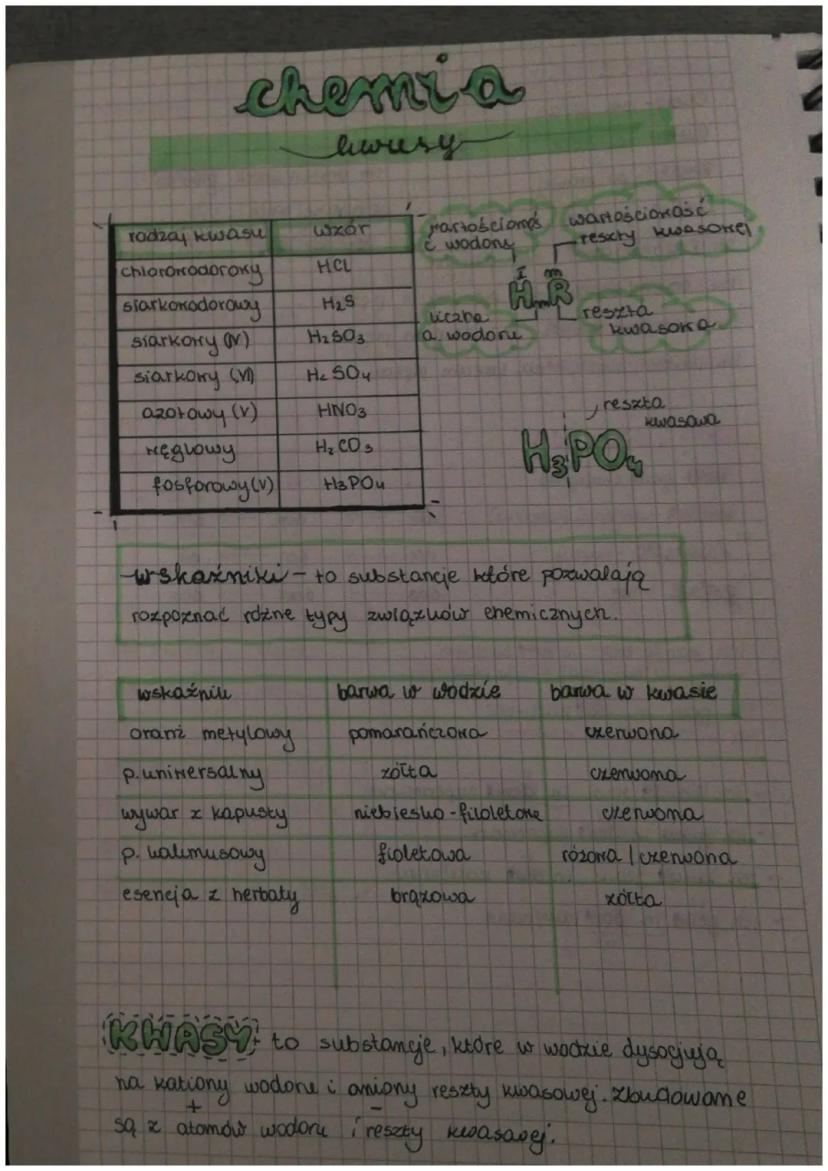 chemia
kwasy
rodzaj kwasu wzór
chlorowodorowy HCL
siarkowodorowy H₂S
siarkowy (IV) H₂SO₃
siarkowy (VI) H₂SO₄
azotowy (V) HNO₃
węglowy H₂CO₃
fosforowy (V) H₃PO₄
wartościowość wodoru
wartościowość
reszty kwasowej
I m
HₘR
liczba
a. wodoru
reszta
kwasowa
reszta
kwasowa
H₃PO₄
wskaźniki - to substancje które pozwalają
rozpoznać różne typy związków chemicznych.
wskaźnik barwa w wodzie barwa w kwasie
oranż metylowy pomarańczowa czerwona
p. uniwersalny żółta czerwona
wywar z kapusty niebiesko-fioletowe czerwona
p. lakmusowy fioletowa różowa / czerwona
esencja z herbaty brązowa żółta
KWASY to substancje, które w wodzie dysocjują
na kationy wodoru i aniony reszty kwasowej. zbudowane
+ -
są z atomów wodoru i reszty kwasowej.